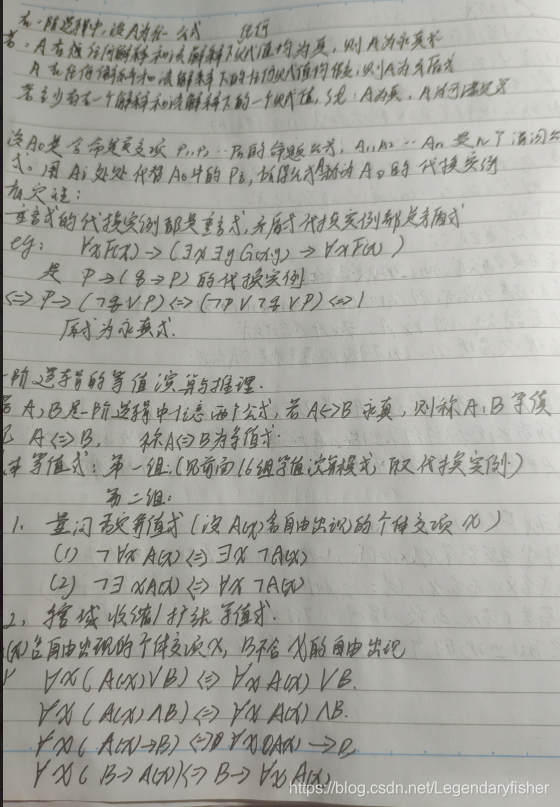 在一阶逻辑中,设A为任一公式 任何
若A在任何解释和该解释下赋值均为真,则A为永真式
A在任何解释和该解释下的任何赋值均假,则A为矛盾式
若至少有一个解释和该解释下的一个赋值,使A为真,A为可满足式
设A0是含命题变项 P1,P2…Pn的命题公式,A1,A2…An是n个谓词公
式。用Ai处处代替A0中的Pi,所得公式称为A0的代换实例
有定理:
重言式的代换实例都是重言式,矛盾式代换实例都是矛盾式
eg: ∀xF(x)→(∃x∃yG(x,y)→∀xF(x))
是 P→(q→P)的代换实例
<=> P→(¬q∨P)<=>(¬P∨¬q∨P)<=>1
原式为永真式.
一阶逻辑的等值演算与推理.
若A,B是一阶逻辑中任意两个公式,若A<->B永真,则称A,B等值
记 A<=>B, 称A<=>B为等值式.
本等值式:第一组:(见前面16组等值演算模式,取代换实例)
第二组:
1. 量词否定等值式(设A(x)含自由出现的个体变项x)
(1) ¬∀xA(x)<=>∃x¬A(x)
(2) ¬∃xA(x)<=>∀x¬A(x)
2. 辖域收缩/扩张等值式.
(x)含自由出现的个体变项x,B不含x的自由出现
∀x(A(x)∨B)<=>∀xA(x)∨B.
∀x(A(x)∧B)<=>∀xA(x)∧B.
∀x(A(x)→B)<=> A(x)→B
∀x(B→A(x))<=>B→∀xA(x)
https://blog.csdn.net/Legendaryfisher